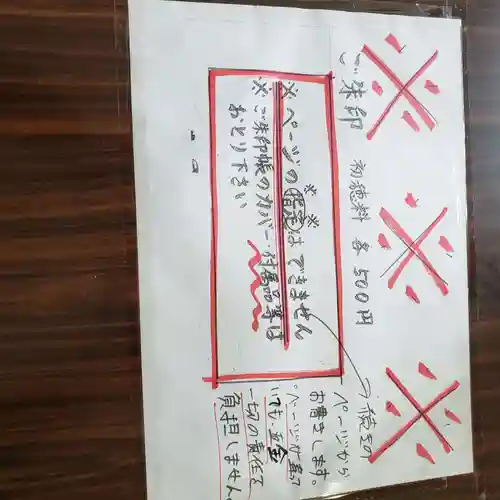 ※ ※ ※
ご朱印 初穂料 各500円
※ページの指定はできません
※ご朱印帳のカバー・付属品等は
おとり下さい
※ ※
続きの
ページから
お書きします。
ページが
いても
一切の責任て
負担しません。